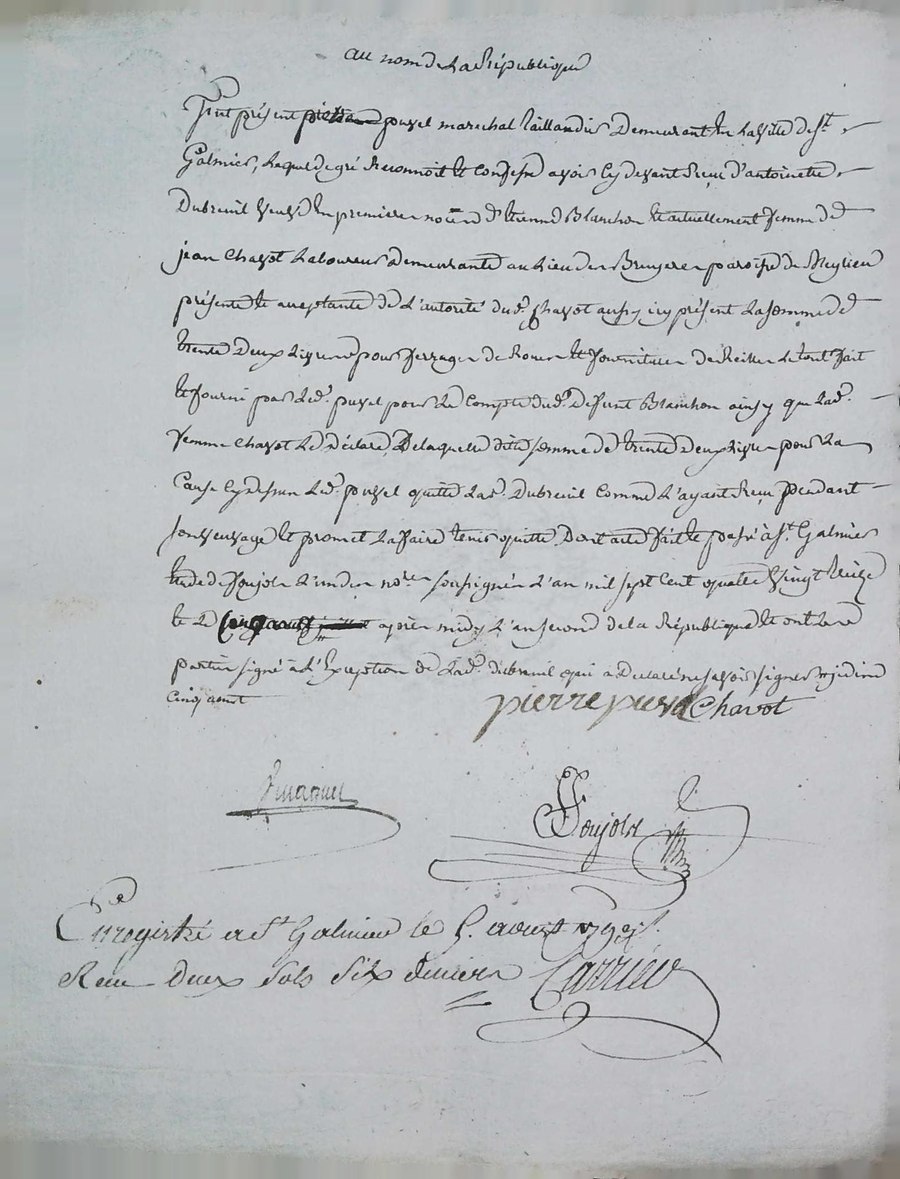 au nom de La République
fut présent pierre puzel marechal taillandier Demeurant en La ville de st
Galmier, Lequel de gré Reconnoit et Confesse avoir Cy devant Reçu d'antoinette
Dubreuil veuve En premiere noce d'Etienne Blanchon et actuellement femme de
jean Chavot Laboureur demeurante au Lieu des Bruyeres paroisse de Meyrieu
présente et acceptante de L'autorité dud. Chavot aussy icy présent La somme de
trente deux Livres pour ferrages de Roues et fourniture de Reilles Le tout fait
et fourni par Led. puzel pour Le Compte dud. defunt Blanchon ainsy que Lad.
femme Chavot Le déclare, De laquelle dite somme de trente deux Livres pour La
Cause Cy dessus Led. puzel quitte Lad. Dubreuil Comme L'ayant Reçu pendant
son veuvage et promet La faire tenir quitte. Dont acte fait et passé à st. Galmier
étude de foujols L'un des nores soussignés L'an mil sept cent quatre vingt treize
et Le après midy L'an second de la République et ont Les
parties signé à L'Exception de Lad. dubreuil qui a Déclaré ne savoir signer
cinq aoust
pierre puzel Chavot
foujols
Enregistré a St Galmier le 5. aoust 1793
Reçu deux sols six deniers Carrier